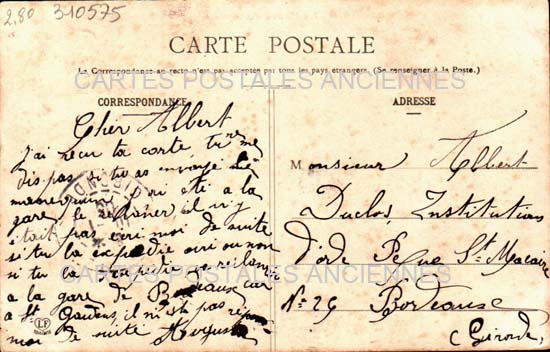 2,80 310575
CARTE POSTALE
La Correspondance au recto n'est pas acceptée par tous les pays étrangers. (Se renseigner à la Poste.)
CARTES POSTALES ANCIENNES
CORRESPONDANCE
Cher Albert
J'ai reçu ta carte tu ne
dis pas si tu as envoyé le
j'ai été a la
gare le il n'y
était pas moi de suite
si tu la expedie oui ou non
si tu la
a la gare de Bordeaux car
a St Gaudens il n'est pas
moi de suite Auguste
LF
ADRESSE
Monsieur Albert
Duclos, Institution
St Macaire
N° 29 Bordeause
(Gironde)
CARTES POSTALES ANCIENNES